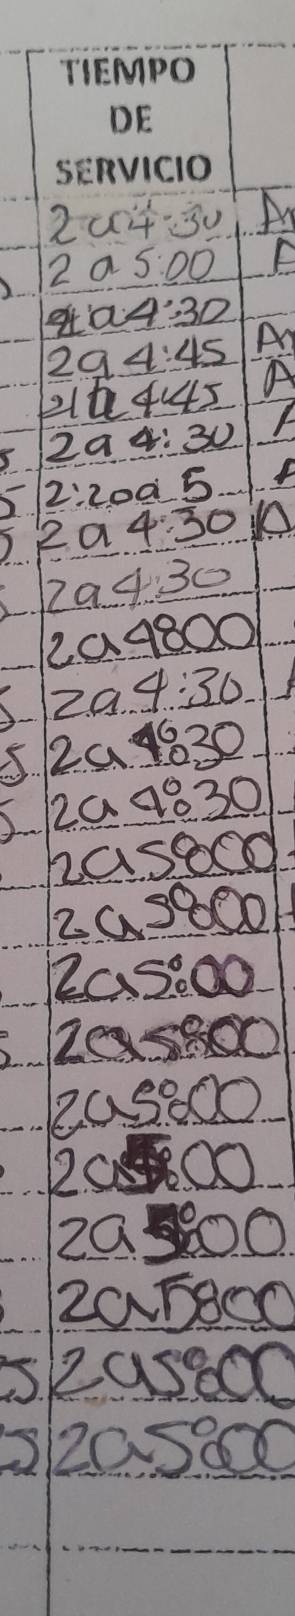 TIEMPO
DE
SERVICIO
2 a 4:30
2 a 5:00
a 4:30
2a 4:45
a 4:45
2a 4:30
2:20a 5
2 a 4:30
2a 4:30
2a 4:00
2a 4:30
2a 4:30
2a 4:30
2a5:00
2a5:00
2a5:00
2a5:00
2a5:00
2a5:00
2a5:00
2a5:00
2a5:00
2a5:00